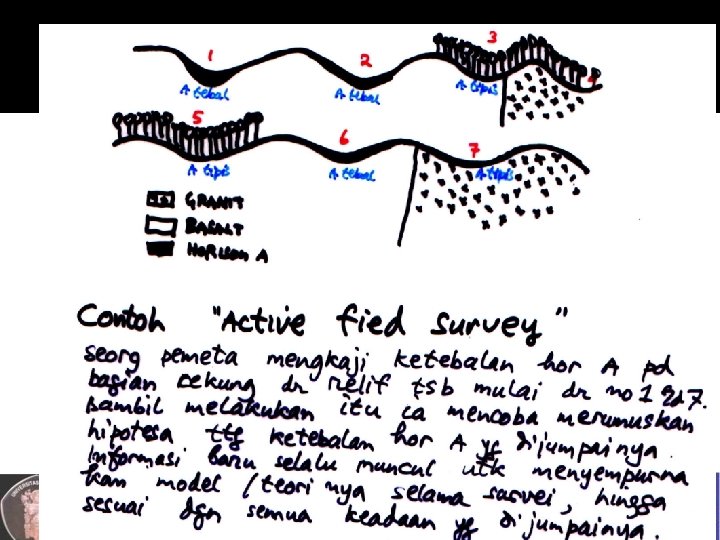 1
2
3
A tebal
A tebal
A tipis
4
5
6
7
A tipis
A tebal
A tipis
GRANIT
BASALT
HORISON A
Contoh "Active fied survey"
seorg pemeta mengkaji ketebalan hor A pd
bagian cekung dr relif tsb mulai dr no 1 s/d 7.
Sambil melakukan itu ia mencoba merumuskan
hipotesa ttg ketebalan hor A yg dijumpainya.
Informasi baru selalu muncul utk menyempurna
kan model/teori nya selama survei, hingga
sesuai dgn semua keadaan yg dijumpainya.
UNIVERSITAS